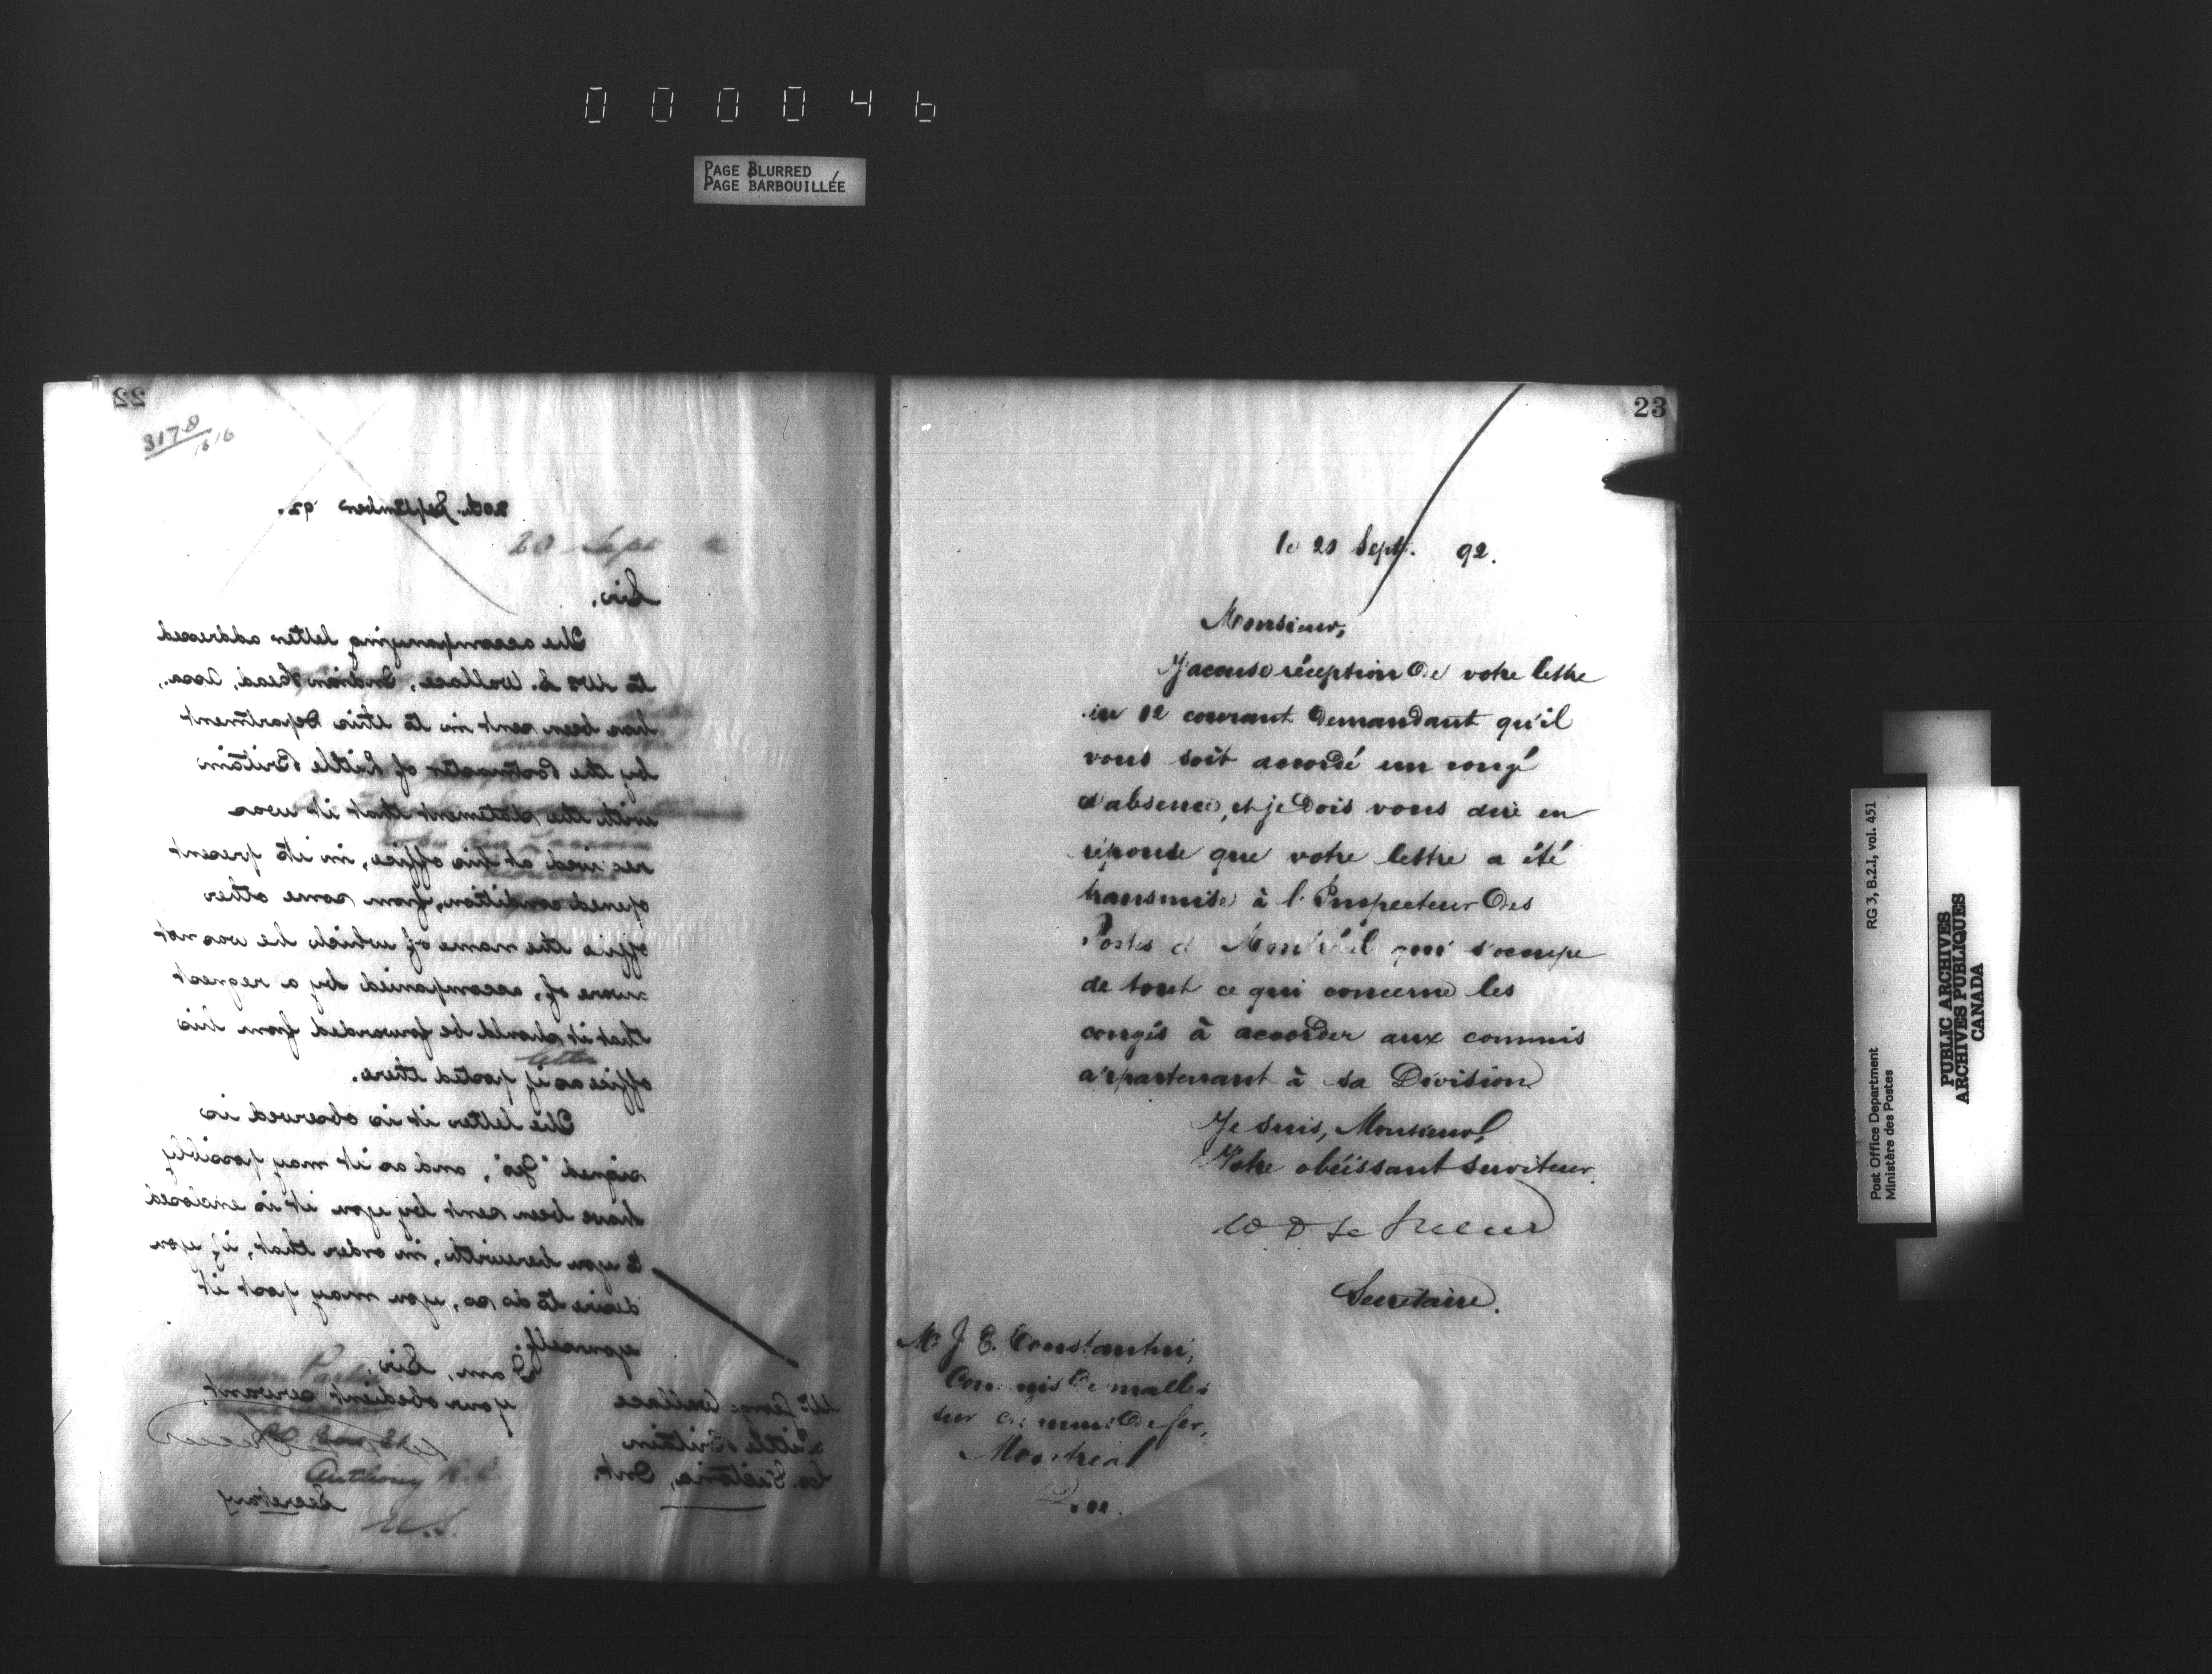 000046
PAGE BLURRED
PAGE BARBOUILLÉE
22
3178
20th September '92.
20 Sept
Sir,
The accompanying letter addressed
to Wallace, Indian Head, Assa.,
has been sent in to this Department
by the Postmaster of Little Britain
with the statement that it was
received at his office, in its present
opened condition, from some other
office the name of which he was not
aware of, accompanied by a request
that it should be forwarded from his
letter
office as if posted there.
The letter it is observed is
signed "Geo", and as it may possibly
have been sent by you it is enclosed
to you herewith, in order that, if you
desire to do so, you may post it
yourself.
I am, Sir,
your obedient servant.
Anthony
Secretary
Mr. George Wallace
Little Britain
Co. Victoria, Ont.
23
le 20 Sept. 92.
Monsieur,
J'accuse réception de votre lettre
du 12 courant demandant qu'il
vous soit accordé un congé
d'absence, et je dois vous dire en
réponse que votre lettre a été
transmise à l'Inspecteur des
Postes de Montréal qui s'occupe
de tout ce qui concerne les
congés à accorder aux commis
appartenant à sa Division
Je suis, Monsieur,
Votre obéissant serviteur.
W D LeSueur
Secrétaire.
Mr. J. E. Constantin,
Commis de malles
sur chemin de fer,
Montréal
Que.
Post Office Department RG 3, B.2.1, vol. 451
Ministère des Postes
PUBLIC ARCHIVES
ARCHIVES PUBLIQUES
CANADA